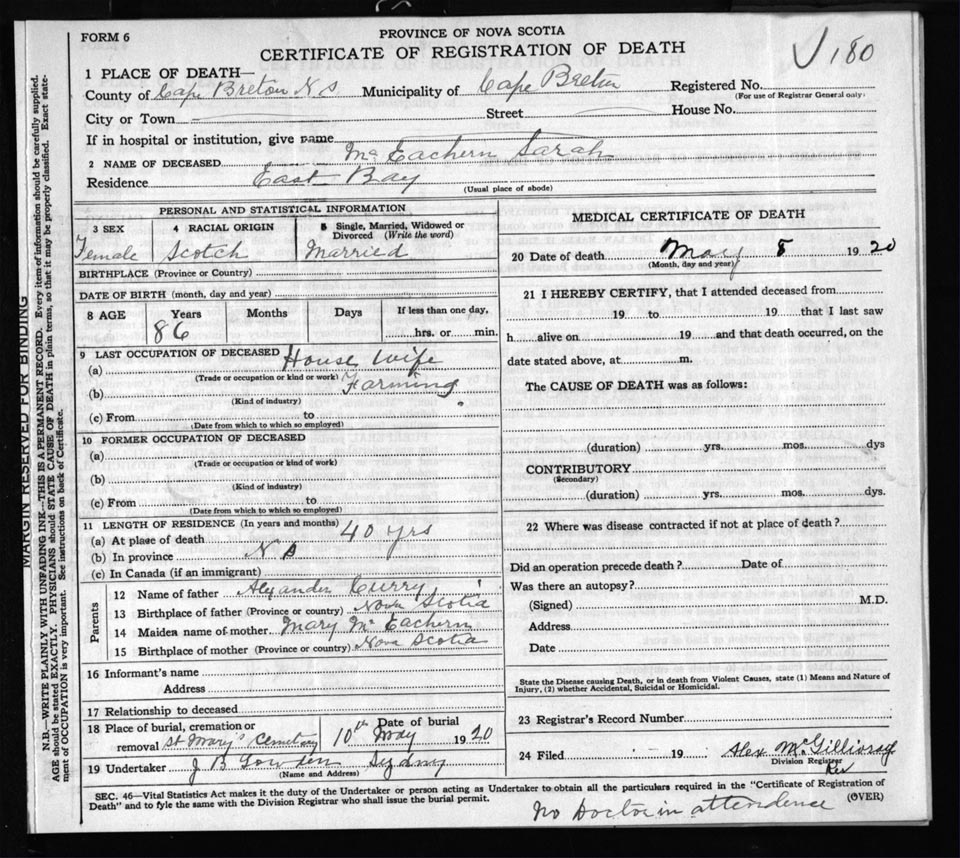 FORM 6
PROVINCE OF NOVA SCOTIA
CERTIFICATE OF REGISTRATION OF DEATH
180
1 PLACE OF DEATH—
County of Cape Breton N.S. Municipality of Cape Breton Registered No.
(For use of Registrar General only)
City or Town Street House No.
If in hospital or institution, give name
2 NAME OF DECEASED McEachern Sarah
Residence East Bay
(Usual place of abode)
PERSONAL AND STATISTICAL INFORMATION
3 SEX 4 RACIAL ORIGIN 5 Single, Married, Widowed or Divorced (Write the word)
Female Scotch Married
BIRTHPLACE (Province or Country)
DATE OF BIRTH (month, day and year)
8 AGE Years Months Days If less than one day,
86 hrs. or min.
9 LAST OCCUPATION OF DECEASED
(a) House Wife
(Trade or occupation or kind or work)
(b) Farming
(Kind of industry)
(c) From to
(Date from which to which so employed)
10 FORMER OCCUPATION OF DECEASED
(a)
(Trade or occupation or kind of work)
(b)
(Kind of industry)
(c) From to
(Date from which to which so employed)
11 LENGTH OF RESIDENCE (In years and months)
(a) At place of death 40 yrs
(b) In province N S
(c) In Canada (if an immigrant)
Parents
12 Name of father Alexander Curry
13 Birthplace of father (Province or country) Nova Scotia
14 Maiden name of mother Mary McEachern
15 Birthplace of mother (Province or country) Nova Scotia
16 Informant's name
Address
17 Relationship to deceased
18 Place of burial, cremation or removal St Mary's Cemetery
Date of burial 10th May 1920
19 Undertaker J B Gowden Sydney
(Name and Address)
MEDICAL CERTIFICATE OF DEATH
20 Date of death May 8 1920
(Month, day and year)
21 I HEREBY CERTIFY, that I attended deceased from
19 to 19 that I last saw
h alive on 19 and that death occurred, on the
date stated above, at m.
The CAUSE OF DEATH was as follows:
(duration) yrs. mos. dys
CONTRIBUTORY
(Secondary)
(duration) yrs. mos. dys.
22 Where was disease contracted if not at place of death?
Did an operation precede death? Date of
Was there an autopsy?
(Signed) M.D.
Address
Date
State the Disease causing Death, or in death from Violent Causes, state (1) Means and Nature of
Injury, (2) whether Accidental, Suicidal or Homicidal.
23 Registrar's Record Number
24 Filed 19 Alex McGillivray
Division Registrar
SEC. 46—Vital Statistics Act makes it the duty of the Undertaker or person acting as Undertaker to obtain all the particulars required in the "Certificate of Registration of
Death" and to fyle the same with the Division Registrar who shall issue the burial permit.
(OVER)
No Doctor in attendence
MARGIN RESERVED FOR BINDING
N.B.—WRITE PLAINLY WITH UNFADING INK—THIS IS A PERMANENT RECORD. Every item of information should be carefully supplied.
AGE should be stated EXACTLY. PHYSICIANS should STATE CAUSE OF DEATH in plain terms, so that it may be properly classified. Exact state-
ment of OCCUPATION is very important. See instructions on back of Certificate.